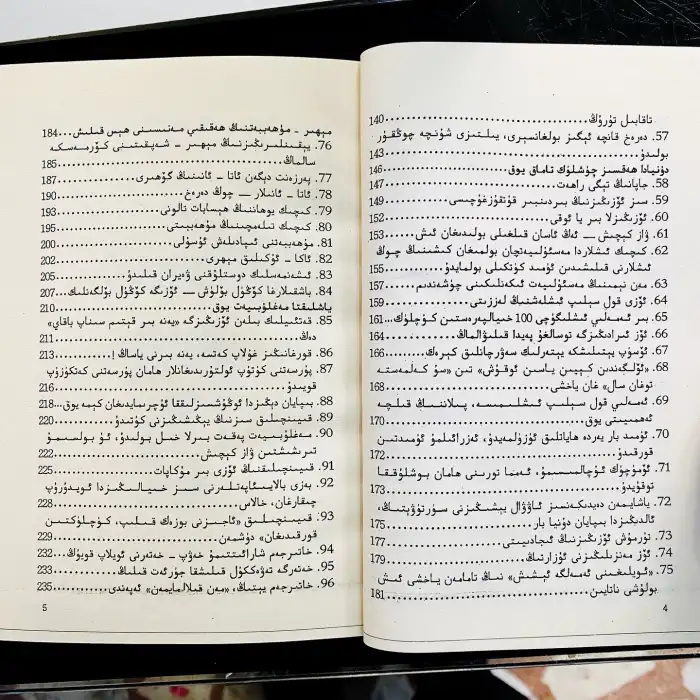 تاقابىل تۇرۇڭ......140
57. دەرەخ قانچە ئېگىز بولغانسېرى، يىلتىزى شۇنچە چوڭقۇر
بولىدۇ......143
دۇنيادا ھەقسىز چۈشلۈك تاماق يوق......146
58. جاپانىڭ تېگى راھەت......147
59. سىز ئۆزىڭىزنىڭ بىردىنبىر قۇتقۇزغۇچىسى......149
60. ئۆزىڭىزلا بىر يا ئوقى......152
61. ۋاز كېچىش — ئەڭ ئاسان قىلغىلى بولىدىغان ئىش......153
62. كىچىك ئىشلاردا مەسئۇلىيەتچان بولمىغان كىشىنىڭ چوڭ
ئىشلارنى قىلىشىدىن ئۈمىد كۈتكىلى بولمايدۇ......155
63. مەن نېمىنىڭ مەسئۇلىيەت ئىكەنلىكىنى چۈشەندىم......157
64. ئۆزى قول سېلىپ ئىشلەشنىڭ لەززىتى......159
65. بىر ئەمەلىي ئىشلىگۈچى 100 خىيالپەرەستىن كۈچلۈك......161
66. ئۆز ئىرادىڭىزگە توسالغۇ پەيدا قىلىۋالماڭ......164
67. ئۆسۈپ يېتىلىشكە يېتەرلىك سەۋرچانلىق كېرەك......166
68. «ئۆلگەندىن كېيىن ياسىن ئوقۇش» تىن «سۇ كەلمەستە
توغان سال» غان ياخشى......168
69. ئەمەلىي قول سېلىپ ئىشلىمىسە، پىلاننىڭ قىلچە
ئەھمىيىتى يوق......170
70. ئۈمىد بار يەردە ھاياتلىق ئۈزۈلمەيدۇ، ئەزرائىلمۇ ئۈمىدتىن
قورقىدۇ......172
71. ئۆمۈچۈك ئۇچالمىسىمۇ، ئەمما تورىنى ھامان بوشلۇققا
توقۇيدۇ......173
72. ياشايمەن دەيدىكەنسىز ئاۋۋال بېشىڭىزنى سۆرتۇۋېتىڭ،
ئالدىڭىزدا بىپايان دۇنيا بار......175
73. تۇرمۇش ئۆزىڭىزنىڭ ئىجادىيىتى......177
74. ئۆز مەنزىلىڭىزنى ئۆزارتىڭ......179
75. «ئويلىغىنى ئەمەلگە ئېشىش» نىڭ تامامەن ياخشى ئىش
بولۇشى ناتايىن......181
4
مېھىر - مۇھەببەتنىڭ ھەقىقىي مەنىسىنى ھېس قىلىش......184
76. يېقىنلىرىڭىزنىڭ مېھىر - شەپقىتىنى كۆرمەسكە
سالماڭ......185
77. پەرزەنت دېگەن ئاتا - ئانىنىڭ گۆھىرى......187
78. ئاتا - ئانىلار — چوڭ دەرەخ......190
79. كىچىك يوھاننىڭ ھېسابات تالونى......193
80. كىچىك تىلەمچىنىڭ مۇھەببىتى......195
81. مۇھەببەتنى ئىپادىلەش ئۇسۇلى......200
82. ئاكا - ئۆكىلىق مېھرى......202
83. ئىشەنمەسلىك دوستلۇقنى ۋەيران قىلىدۇ......205
84. باشقىلارغا كۆڭۈل بۆلۈش — ئۆزىگە كۆڭۈل بۆلگەنلىك......207
ياشلىقتا مەغلۇبىيەت يوق......210
85. قەتئىيلىك بىلەن ئۆزىڭىزگە «يەنە بىر قېتىم سىناپ باقاي»
دەڭ......211
86. قورغانىڭىز غۇلاپ كەتسە، يەنە بىرنى ياساڭ!......213
87. پۇرسەتنى كۈتۈپ ئولتۇرىدىغانلار ھامان پۇرسەتنى كەتكۈزۈپ
قويىدۇ......216
88. بىپايان دېڭىزدا ئوڭۇشسىزلىققا ئۇچرىمايدىغان كېمە يوق......218
89. قىيىنچىلىق سىزنىڭ يېڭىشىڭىزنى كۈتىدۇ......220
90. مەغلۇبىيەت پەقەت بىرلا خىل بولىدۇ، ئۇ بولسىمۇ
تىرىشىشتىن ۋاز كېچىش......222
91. قىيىنچىلىقنىڭ ئۆزى بىر مۇكاپات......225
92. بەزى بالايىئاپەتلەرنى سىز خىيالىڭىزدا ئويدۇرۇپ
چىقارغان، خالاس......228
93. قىيىنچىلىق «ئاجىزنى بوزەك قىلىپ، كۈچلۈكتىن
قورقىدىغان» دۈشمەن......229
94. خاتىرجەم شارائىتتىمۇ خەۋپ - خەتەرنى ئويلاپ قويۇڭ......232
95. خەتەرگە تەۋەككۈل قىلىشقا جۈرئەت قىلىڭ......233
96. خاتىرجەم يېتىڭ، «مەن قىلالمايمەن» ئەپەندى......235
5